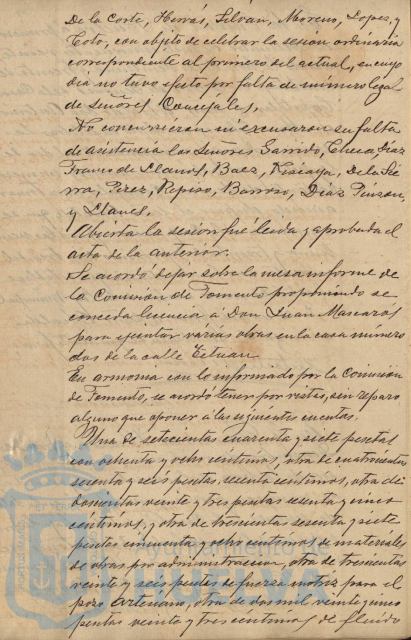 De la Corte, Hervás, Silván, Moreno, Lopez, y
Toto, con objeto de celebrar la sesión ordinaria
correspondiente al primero del actual, en cuyo
dia no tuvo efecto por falta de número legal
de señores Concejales.
No concurrieron ni escusaron su falta
de asistencia los Señores Garrido, Checa, Diaz
Franco de Llanos, Baez, Vizcaya, De la Sie
rra, Perez, Repiso, Barroso, Diaz Pinzon,
y Llanes.
Abierta la sesión fué leida y aprobada el
acta de la anterior.
Se acordó dejar sobre la mesa informe de
la Comisión de Fomento proponiendo se
conceda licencia a Don Juan Mascaros
para ejecutar varias obras en la casa número
dos de la calle Tetuan.
En armonia con lo informado por la Comision
de Fomento, se acordó tener por vistas, sin reparo
alguno que oponer á las siguientes cuentas.
Una de setecientas cuarenta y siete pesetas
con ochenta y ocho centimos, otra de cuatrocientas
y seis pesetas, centimos, otra de
doscientas veinte y tres pesetas sesenta y cinco
centimos, y otra de trescientas sesenta y siete
pesetas cincuenta y ocho centimos de materiales
de obras por administracion, otra de trescientas
veinte y seis pesetas de fuerza motriz para el
pozo Artesiano, otra de dos mil veinte y cinco
pesetas veinte y tres centimos de fluido
Ayuntamiento de
HUELVA